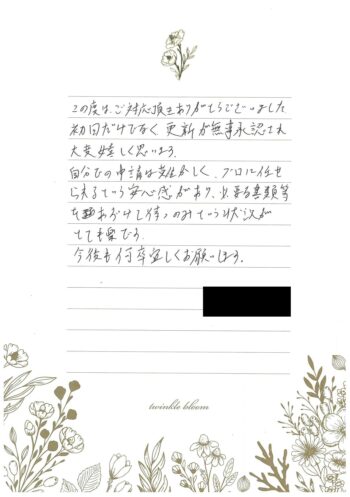 この度は、ご対応頂きありがとうございました
初回だけでなく、更新が無事承認され
大変嬉しく思います。
自分での申請は難しく、プロに任せ
られるという安心感があり、必要書類等
をあずけて待つのみという状況が
とても楽です。
今後も何卒宜しくお願いします。
twinkle bloom